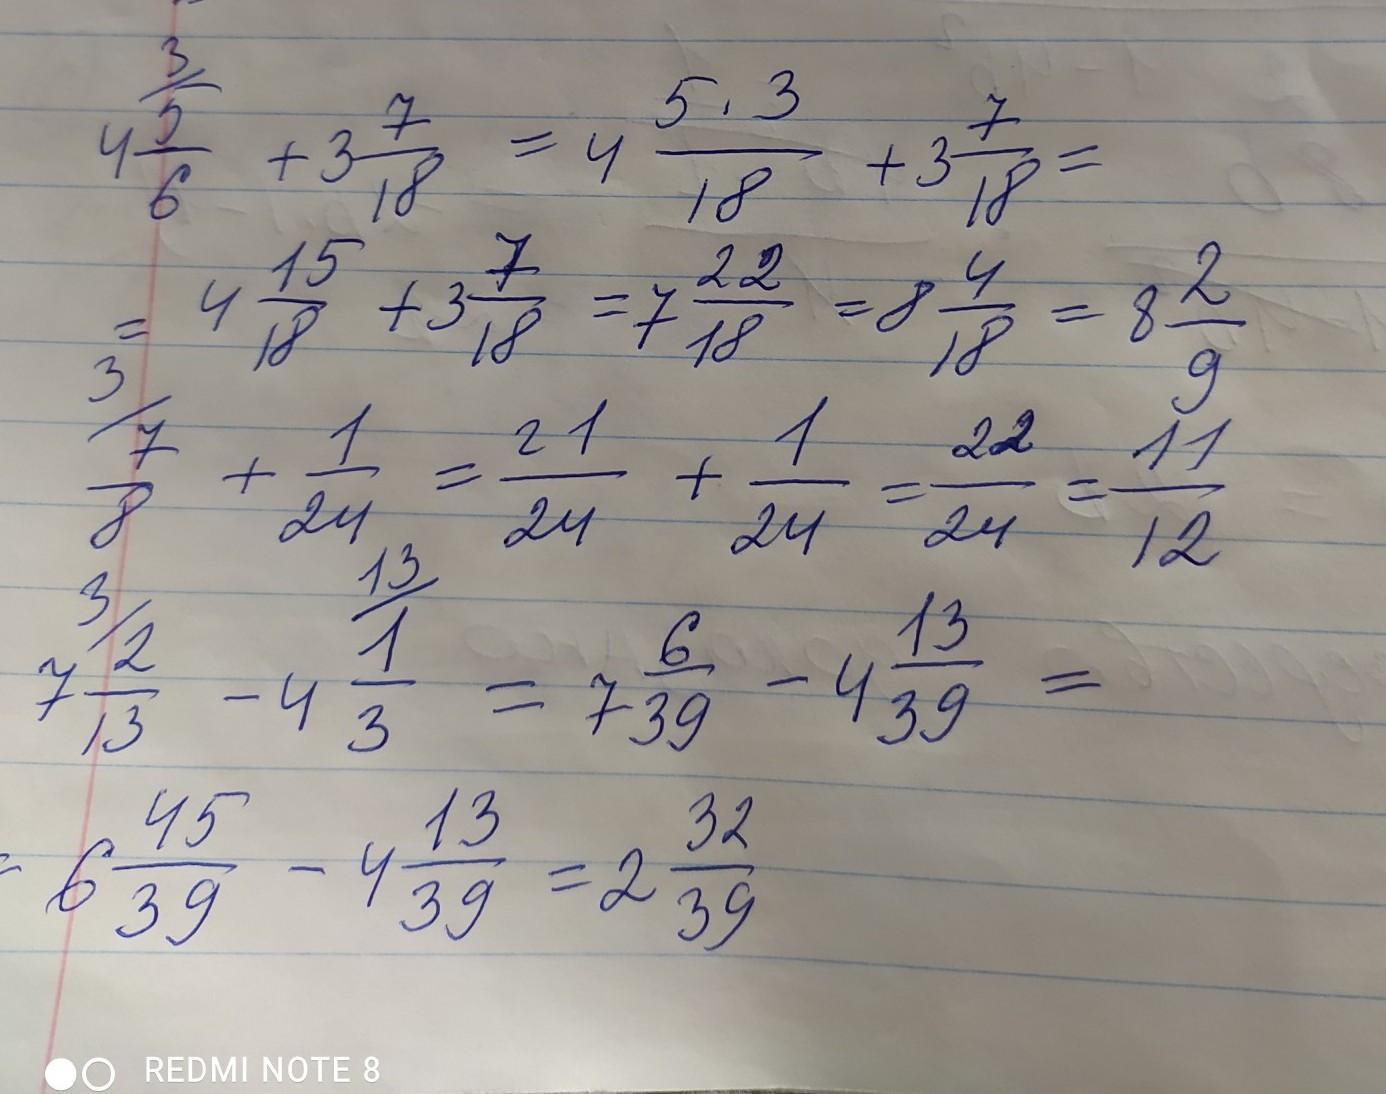 3/
4 5/6 + 3 7/18 = 4 5·3/18 + 3 7/18 =
= 4 15/18 + 3 7/18 = 7 22/18 = 8 4/18 = 8 2/9
3/
7/8 + 1/24 = 21/24 + 1/24 = 22/24 = 11/12
3/ 13/
7 2/13 - 4 1/3 = 7 6/39 - 4 13/39 =
= 6 45/39 - 4 13/39 = 2 32/39
REDMI NOTE 8